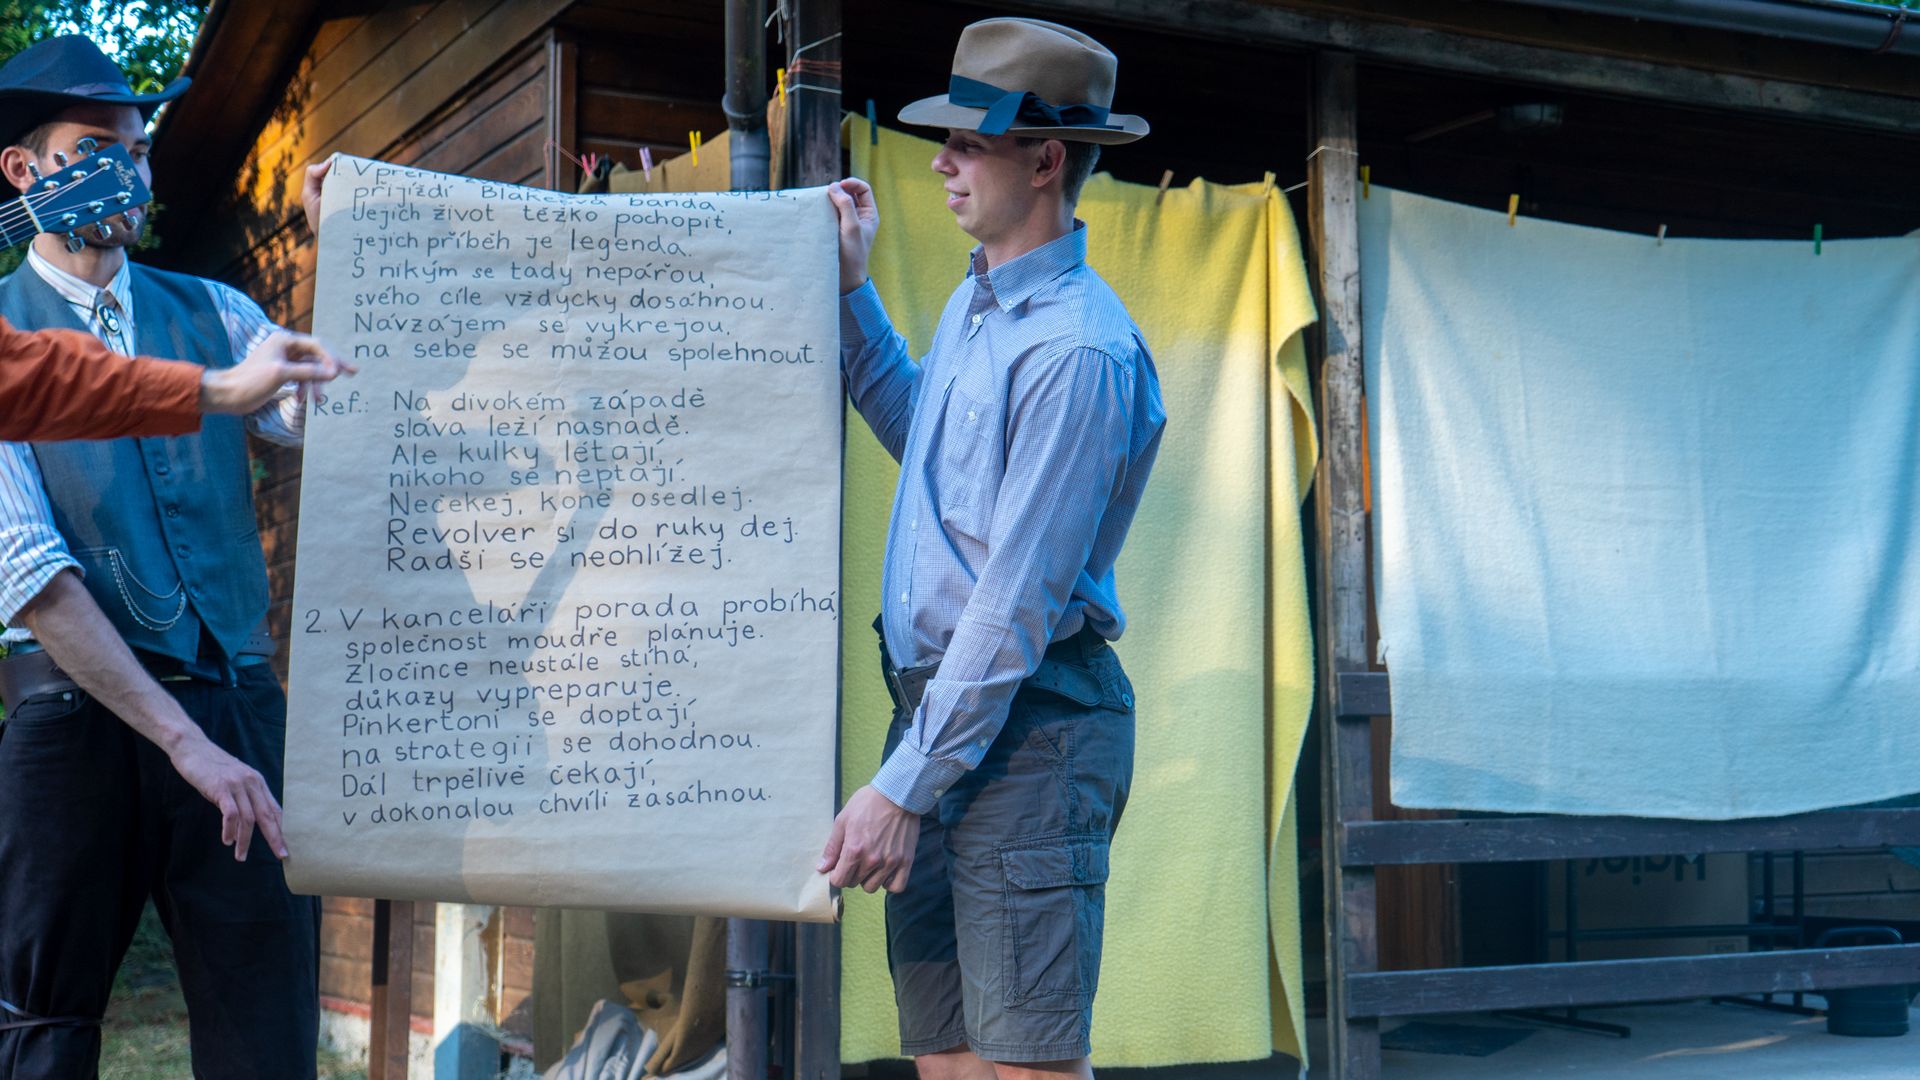 1. V prérii
přijíždí Blakeova banda.
Jejich život těžko pochopit,
jejich příběh je legenda.
S nikým se tady nepářou,
svého cíle vždycky dosáhnou.
Navzájem se vykrejou,
na sebe se můžou spolehnout.
Ref.: Na divokém západě
sláva leží nasnadě.
Ale kulky létají,
nikoho se neptají.
Nečekej, koně osedlej.
Revolver si do ruky dej.
Radši se neohlížej.
2. V kanceláři porada probíhá,
společnost moudře plánuje.
Zločince neustále stíhá,
důkazy vypreparuje.
Pinkertoni se doptají,
na strategii se dohodnou.
Dál trpělivě čekají,
v dokonalou chvíli zasáhnou.
SIGMA